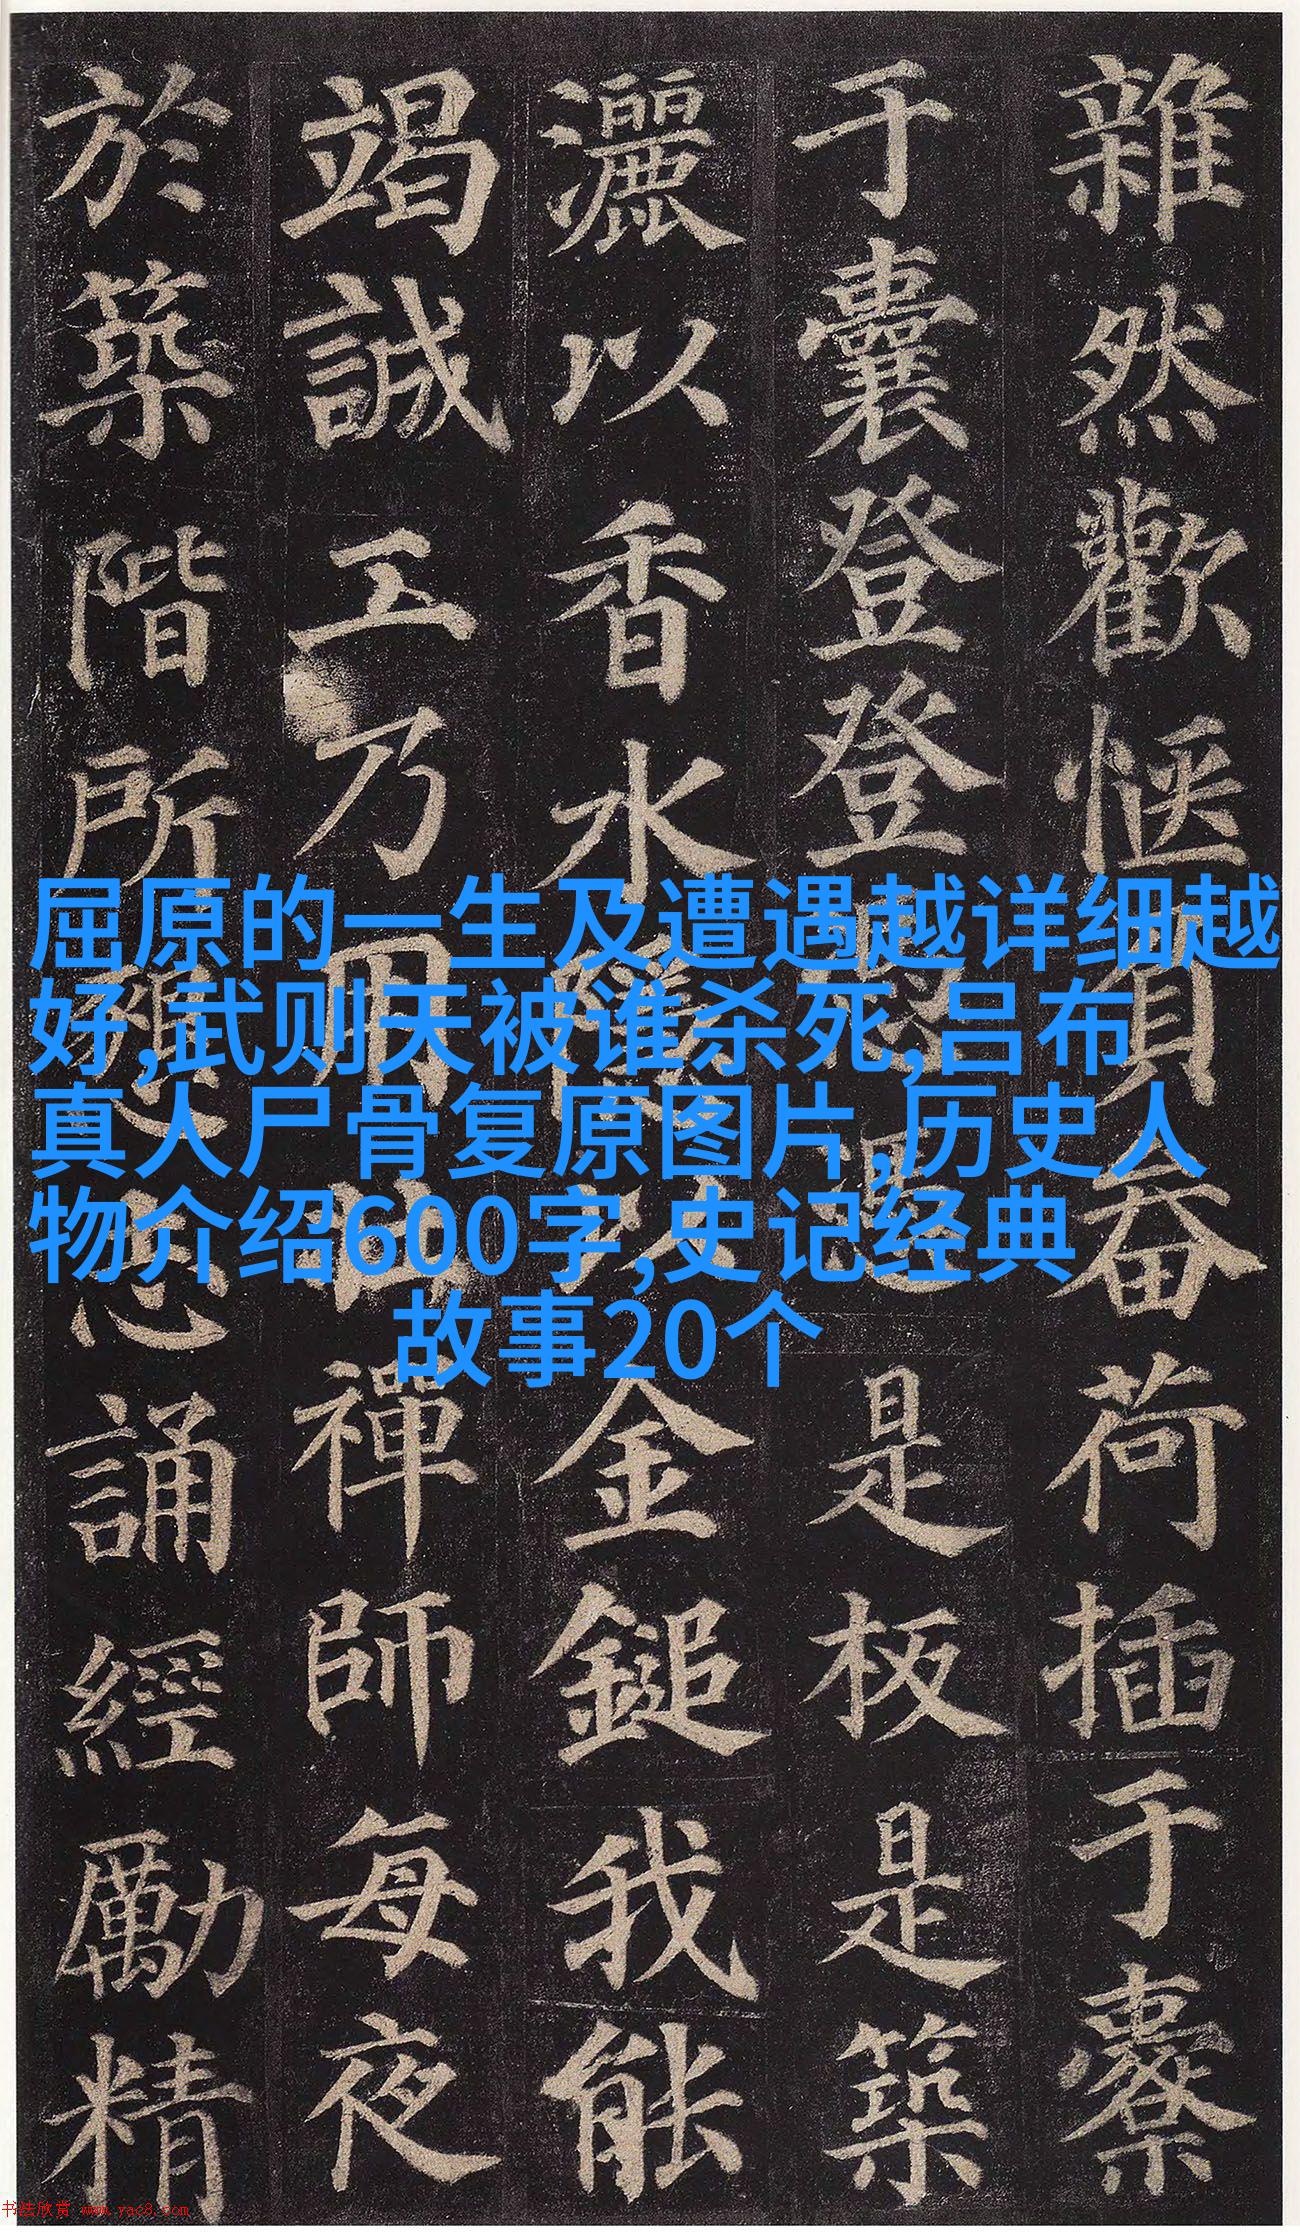 雜然歡愜負畚荷插于橐
于囊登登是板是築
灑以香水以金鎚我能
竭誠工乃用禪師每夜
於築階所誦經勵精
屈原的一生及遭遇越详细越
好,武则天被谁杀死,吕布
真人尸骨复原图片,历史人
物介绍600字,史记经典
故事20个
书法欣赏 www.yac8.com